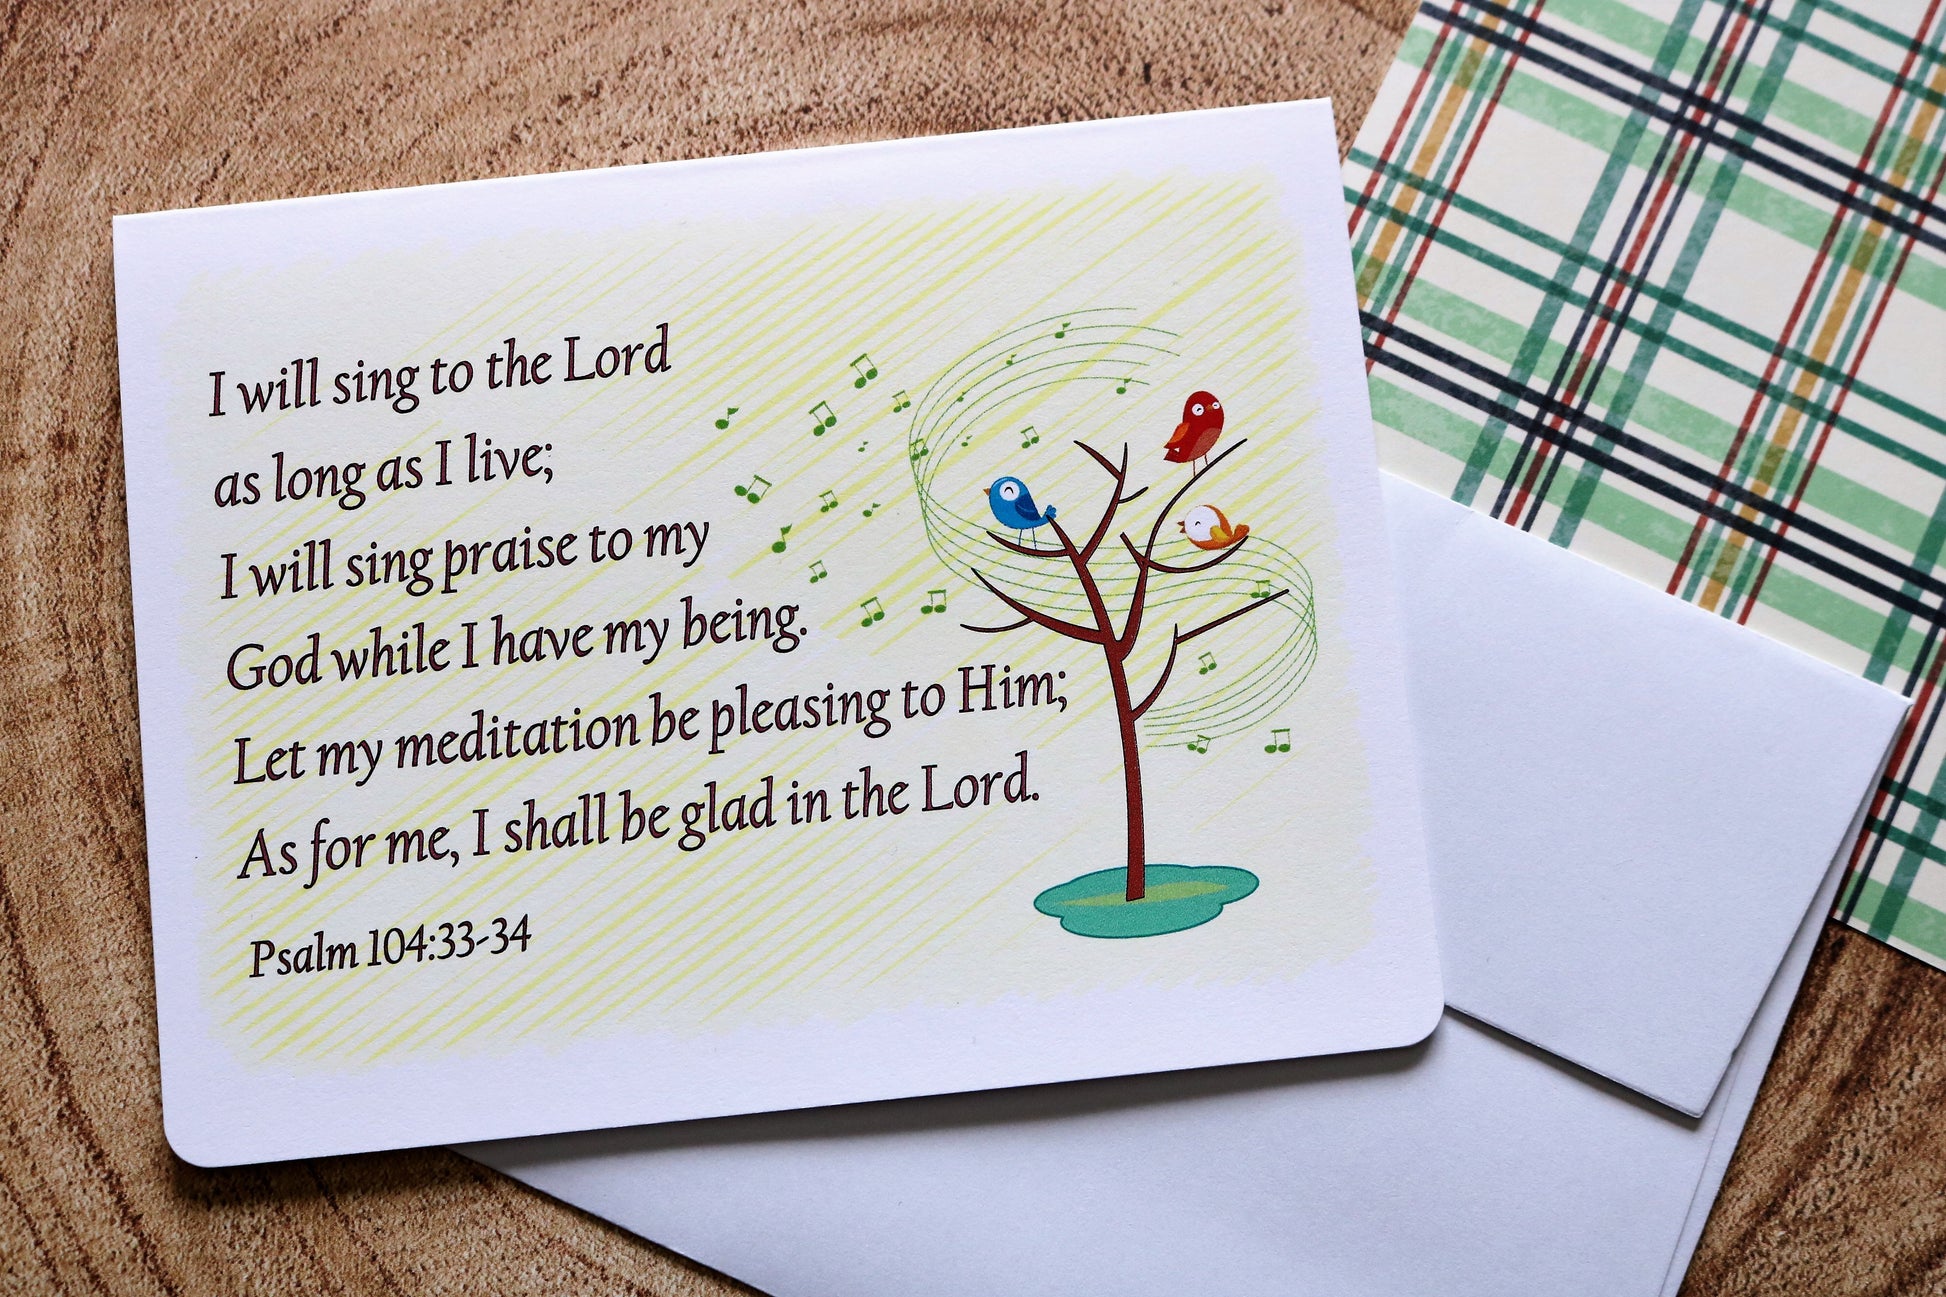 I will sing to the Lord
as long as I live;
I will sing praise to my
God while I have my being.
Let my meditation be pleasing to Him;
As for me, I shall be glad in the Lord.
Psalm 104:33-34